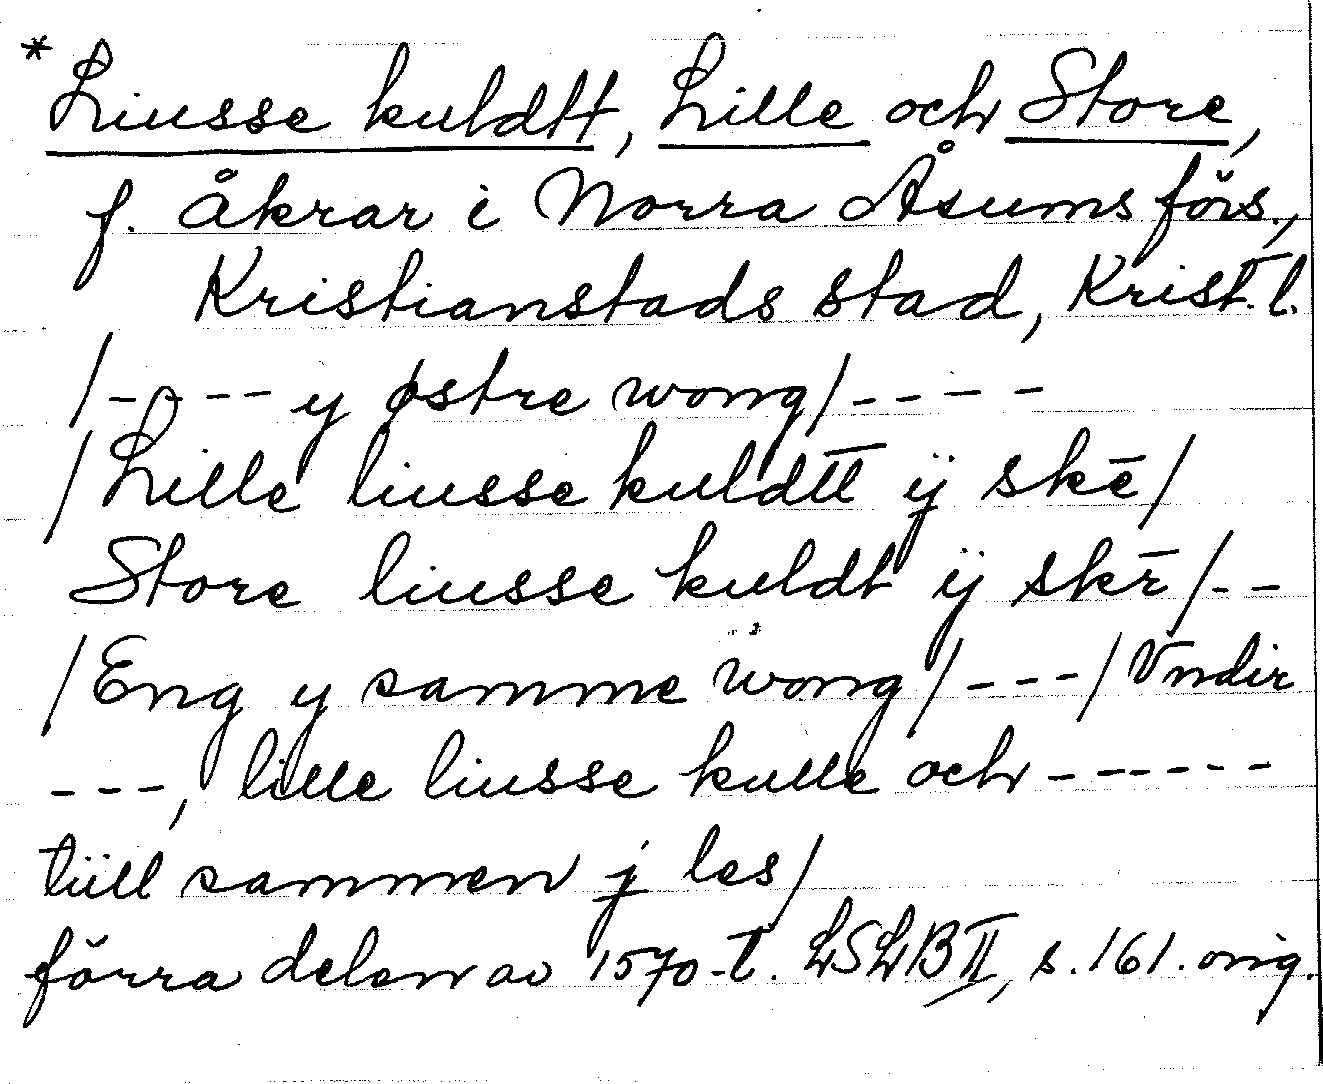 *Liusse kuldtt, Lille och Store,
f. åkrar i Norra Åsums förs.,
Kristianstads stad, Krist. l.
/---- y østre wong/----
/Lille liusse kuldtt ÿ skē/
Store liusse kuldt ÿ skr̄/--
/Eng y samme wong/---/Vndir
---, lille liusse kulle och ------
tüll sammen j les/
förra delen av 1570-t. LSLB II, s. 161. orig.